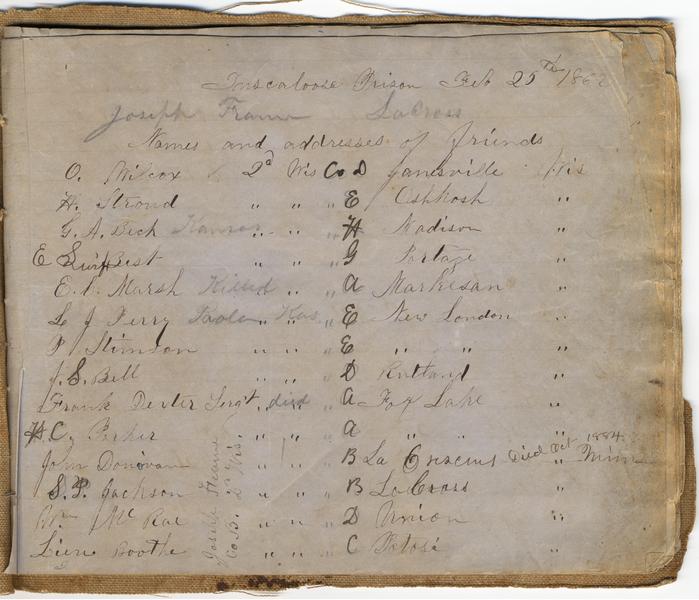 Tuscaloosa Prison Feb 25th 1862
Joseph Frame LaCross
Names and addresses of friends
O. Wilcox 2d Wis Co D Janesville Wis
H. Stroud " " " E Oshkosh "
G. A. Beck Kansas " " " H Madison "
E Best " " " G Portage "
E. Marsh Killed " " A Markesan "
L J Perry Paola " Kas " E New London "
P Stimson " " " E " " "
J. S. Bell " " " D Rutland "
Frank Dexter Sergt " died " A Fox Lake "
H. C. Parker " " A " " "
John Donovan " " B La Crescent Died Oct 1884 " Minn
S. P. Jackson " " " B LaCross "
Wm Mc Rae " " " D Union "
Booth " " " C Potosi "
Joseph Frame
Co B. 2d Wis.